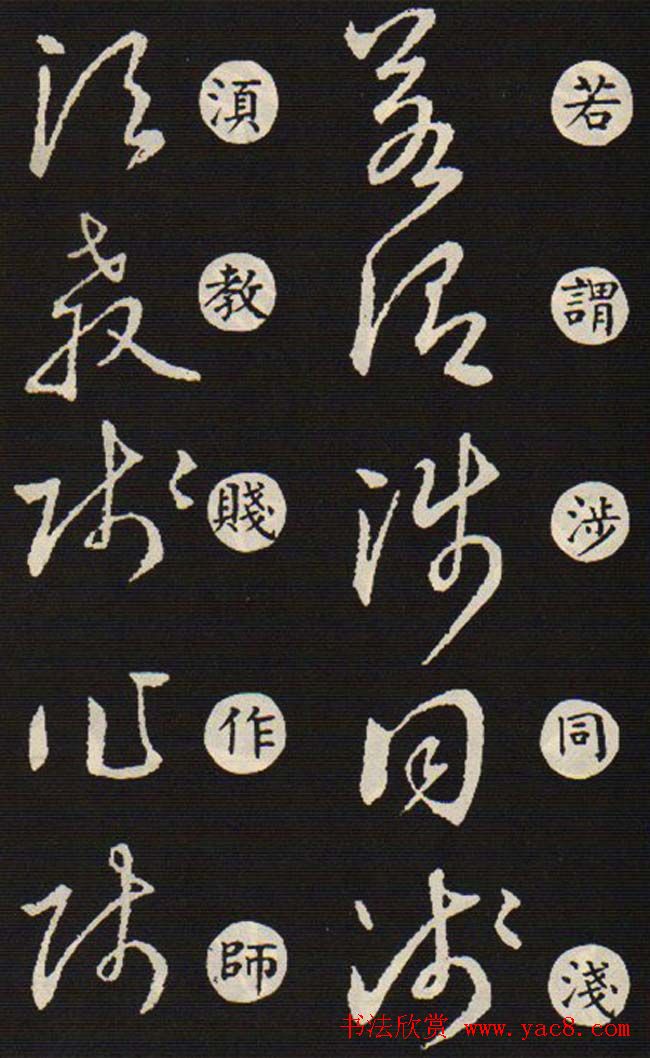 若謂涉同淺
須教賤作師
书法欣赏 www.yac8.com